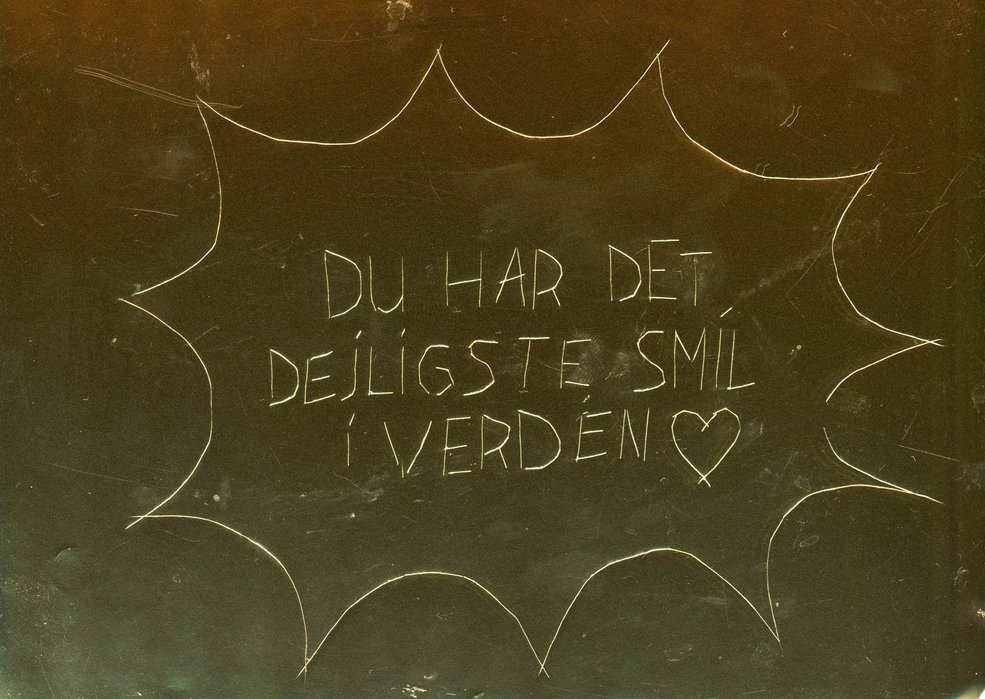 DU HAR DET
DEJLIGSTE SMIL
I VERDEN ♡